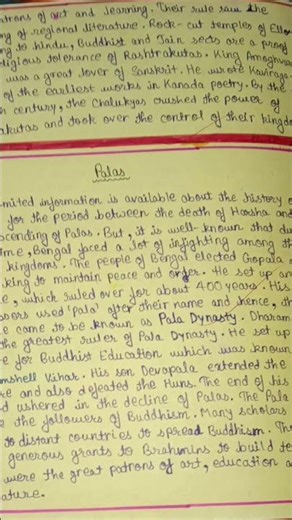 patrons of art and learning. Their rule saw the
ng of regional literature. Rock-cut temples of Ello
ng to hindu, Buddhist and Jain sects are a proof
ligious tolerance of Rashtrakutas. King Amoghva
was a great lover of Sanskrit. He wrote Kaviraga
of the earliest works in Kanada poetry. By the
h century, the Chalukyas crushed the power of
akutas and took over the control of their kingdo
Palas
imited information is available about the history o
for the period between the death of Harsha and
scending of Palas. But, it is well-known that du
ime, Bengal faced a lot of infighting among th
kingdoms. The people of Bengal elected Gopala a
king to maintain peace and order. He set up an
e, which ruled over for about 400 years. His
ssors used 'pala' after their name and hence, th
e came to be known as Pala Dynasty. Dharam
the greatest ruler of Pala Dynasty. He set up
e for Buddhist Education which was known
amshell Vihar. His son Devapala extended the
re and also defeated the Huns. The end of his
d ushered in the decline of Palas. The Pala
e the followers of Buddhism. Many scholars
to distant countries to spread Buddhism. The
generous grants to Brahmins to build te
were the great patrons of art, education a
ature.